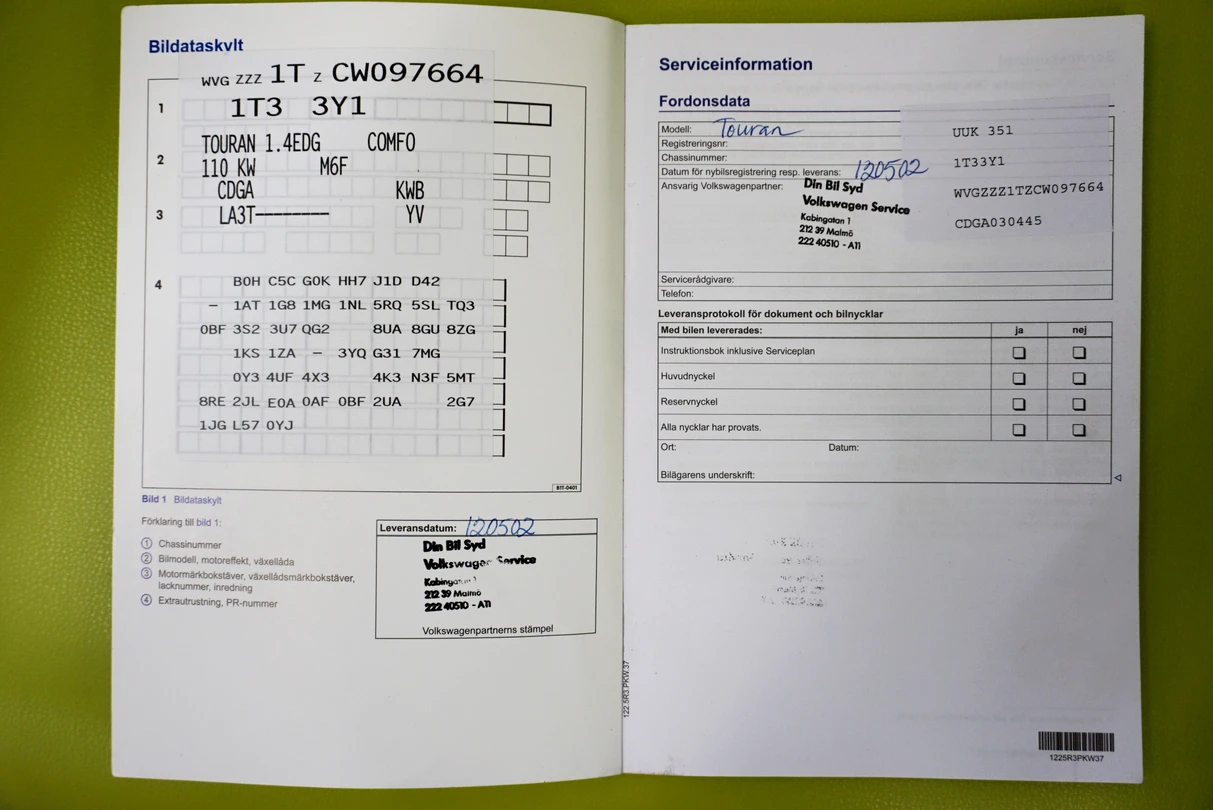 Bildataskylt
WVG ZZZ 1T Z CW097664
1 1T3 3Y1
TOURAN 1.4EDG COMFO
2 110 KW M6F
CDGA KWB
3 LA3T-------- YV
4 B0H C5C G0K HH7 J1D D42
– 1AT 1G8 1MG 1NL 5RQ 5SL TQ3
0BF 3S2 3U7 QG2 8UA 8GU 8ZG
1KS 1ZA – 3YQ G31 7MG
0Y3 4UF 4X3 4K3 N3F 5MT
8RE 2JL E0A 0AF 0BF 2UA 2G7
1JG L57 0YJ
B1T-0401
Bild 1 Bildataskylt
Förklaring till bild 1:
1 Chassinummer
2 Bilmodell, motoreffekt, växellåda
3 Motormärkbokstäver, växellådsmärkbokstäver,
lacknummer, inredning
4 Extrautrustning, PR-nummer
Leveransdatum: 120502
Din Bil Syd
Volkswagen Service
Kabingatan 1
212 39 Malmö
222 40510 - A11
Volkswagenpartnerns stämpel
Serviceinformation
Fordonsdata
Modell: Touran
Registreringsnr: UUK 351
Chassinummer: 1T33Y1
Datum för nybilsregistrering resp. leverans: 120502
Ansvarig Volkswagenpartner: Din Bil Syd WVGZZZ1TZCW097664
Volkswagen Service
Kabingatan 1 CDGA030445
212 39 Malmö
222 40510 - A11
Servicerådgivare:
Telefon:
Leveransprotokoll för dokument och bilnycklar
Med bilen levererades: ja nej
Instruktionsbok inklusive Serviceplan
Huvudnyckel
Reservnyckel
Alla nycklar har provats.
Ort: Datum:
Bilägarens underskrift:
122.5R3.PKW.37
1225R3PKW37